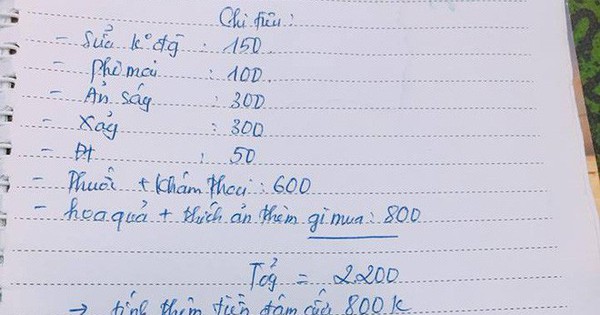 Chi tiêu:
- Sữa k° đg : 150
- phô mai : 100.
- Ăn ság : 300
- Xăg : 300
- Đt : 50
- Thuốc + khám thai : 600
- hoa quả + thích ăn thêm gì mua : 800
Tổg = 2.200
→ tính thêm tiền đám cưới 800k